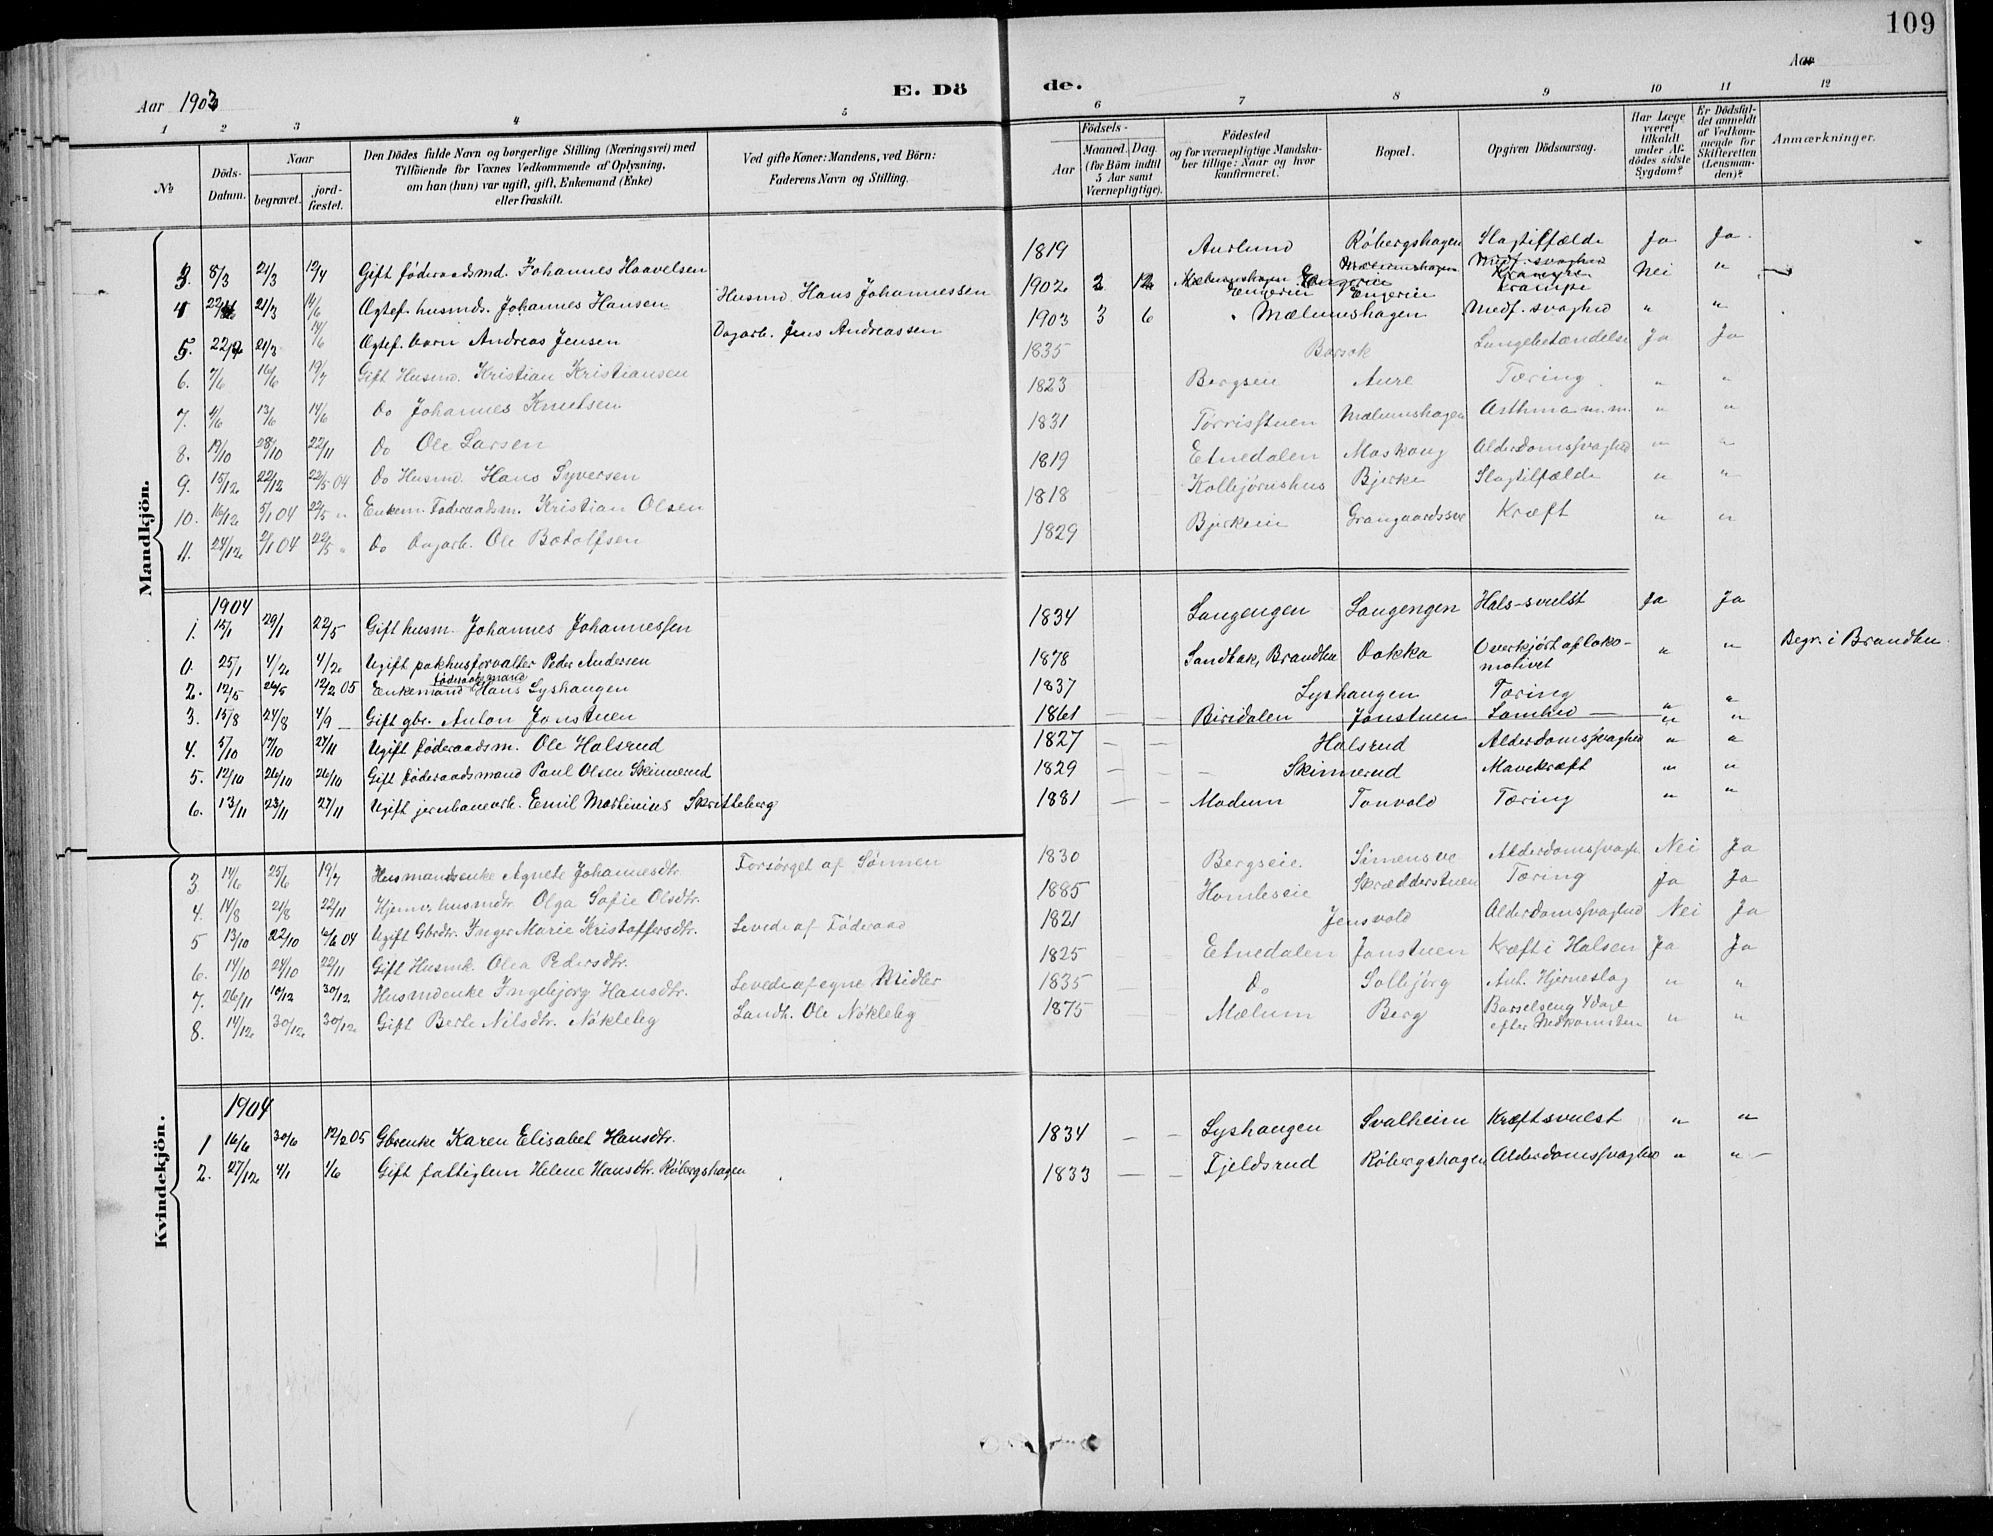 109
Aar 1903
E. Dö
de.
Aar
1 2 3 4 5 6 7 8 9 10 11 12
No
Döds-Datum.
Naar
begravet.
jord-fæstet.
Den Dödes fulde Navn og borgerlige Stilling (Næringsvei) med
Tilföiende for Voxnes Vedkommende af Oplysning,
om han (hun) var ugift, gift, Enkemand (Enke)
eller fraskilt.
Ved gifte Koner: Mandens, ved Börn:
Faderens Navn og Stilling.
Födsels-
Aar
Maaned. Dag.
(for Börn indtil
5 Aar samt
Værnepligtige).
Födested
og for værnepligtige Mandska-
ber tillige: Naar og hvor
konfirmeret.
Bopæl.
Opgiven Dödsaarsag.
Har Læge
været
tilkaldt
under Af-
dödes sidste
Sygdom?
Er Dödsfal-
det anmeldt
af Vedkom-
mende for
Skifteretten
(Lensman-
den)?
Anmærkninger.
Mandkjön.
3. 8/3 21/3 12/4 Gift föderaadsmd. Johannes Haavelsen 1819 Aurlund Röbergshagen Slagtilfælde Ja Ja
4 21/3 14/6 Ægtef. husmds. Johannes Hansen Husmd. Hans Johannessen 1902 2 12 Engerien Engerien Krampe Nei "
5. 21/3 14/6 Ægtef. barn Andreas Jensen Dagarb. Jens Andreassen 1903 3 6 " Mælumshagen Medf. svaghed " "
6. 7/6 16/6 19/7 Gift Husmd. Kristian Kristiansen 1835 Barsok Lungebetændelse Ja Ja
7. 4/6 13/6 14/6 Do Johannes Knutsen 1823 Bergseie Aure Tæring " "
8. 19/10 28/10 22/11 Do Ole Larsen 1831 Torrisstuen Mælumshagen Asthma m.m. " "
9. 15/12 22/12 22/5 04 Do Husmd. Hans Syversen 1819 Etnedalen Maskaug Alderdomssvaghed " "
10. 16/12 5/1 04 22/5 " Enkem. Föderaadsm. Kristian Olsen 1818 Kollejörnshus Bjerke Slagtilfælde " "
11. 24/12 2/1 04 22/5 " Do Dagarb. Ole Botolfsen 1829 Bjerkeie Grangaardsseie Kræft " "
1904
1. 15/1 29/1 22/5 Gift husm. Johannes Johannessen 1834 Langengen Langengen Hals-svulst Ja Ja
0. 25/1 4/2 4/2 Ugift pakhusforvalter Peder Andersen 1878 Sandbak, Brandbu Dokka Overkjört af loko-
motivet " " Begr. i Brandbu.
2. 12/5 26/5 12/2 05 Enkemand föderaadsmand Hans Lyshaugen 1837 Lyshaugen Tæring " "
3. 15/8 24/8 4/9 Gift gbr. Anton Jonstuen 1861 Biridalen Jonstuen Lamhed " "
4. 5/10 17/10 27/11 Ugift föderaadsm. Ole Halsrud 1827 Halsrud Alderdomssvaghed " "
5. 12/10 26/10 26/10 Gift föderaadsmand Paul Olsen Skinnerud 1829 Skinnerud Mavekræft " "
6. 13/11 23/11 27/11 Ugift jernbanearb. Emil Martinius Skritteberg 1881 Modum Tonvold Tæring " "
Kvindekjön.
3 14/6 25/6 19/7 Husmandsenke Agnete Johannesdtr. Forsörget af Sönnen 1830 Bergseie Simenseie Alderdomssvagh. Nei Ja
4. 14/8 21/8 22/11 Hjemv. husmdtr. Olga Sofie Olsdtr. 1885 Homleseie Skrædderstuen Tæring Ja Ja
5 13/10 22/10 04 Ugift Gbrdtr. Inger Marie Kristoffersdtr. Levede af Föderaad 1821 Jensvold Alderdomssvaghed Nei Ja
6. 14/10 24/10 22/11 Gift Husmk. Olea Pedersdtr. 1825 Etnedalen Jonstuen Kræft i Halsen Ja Ja
7. 26/11 10/12 30/12 Husmdenke Ingebjorg Hansdtr. Levede af egne Midler 1835 Do Solbjörg Ant. Hjerneslag " "
8. 14/12 30/12 30/12 Gift Berte Nilsdtr. Nökleby Landh. Ole Nökleby 1875 Mælum Berg Barselseng 4 dage
efter Nedkomsten " "
1904
1 16/6 30/6 12/2 05 Gbrenke Karen Elisabet Hansdtr. 1834 Lyshaugen Svalheim Kræftsvulst " "
2. 27/12 4/1 1/6 Gift fattiglem Helene Hansdtr. Röbergshagen 1833 Fjeldsrud Röbergshagen Alderdomssvaghed " "